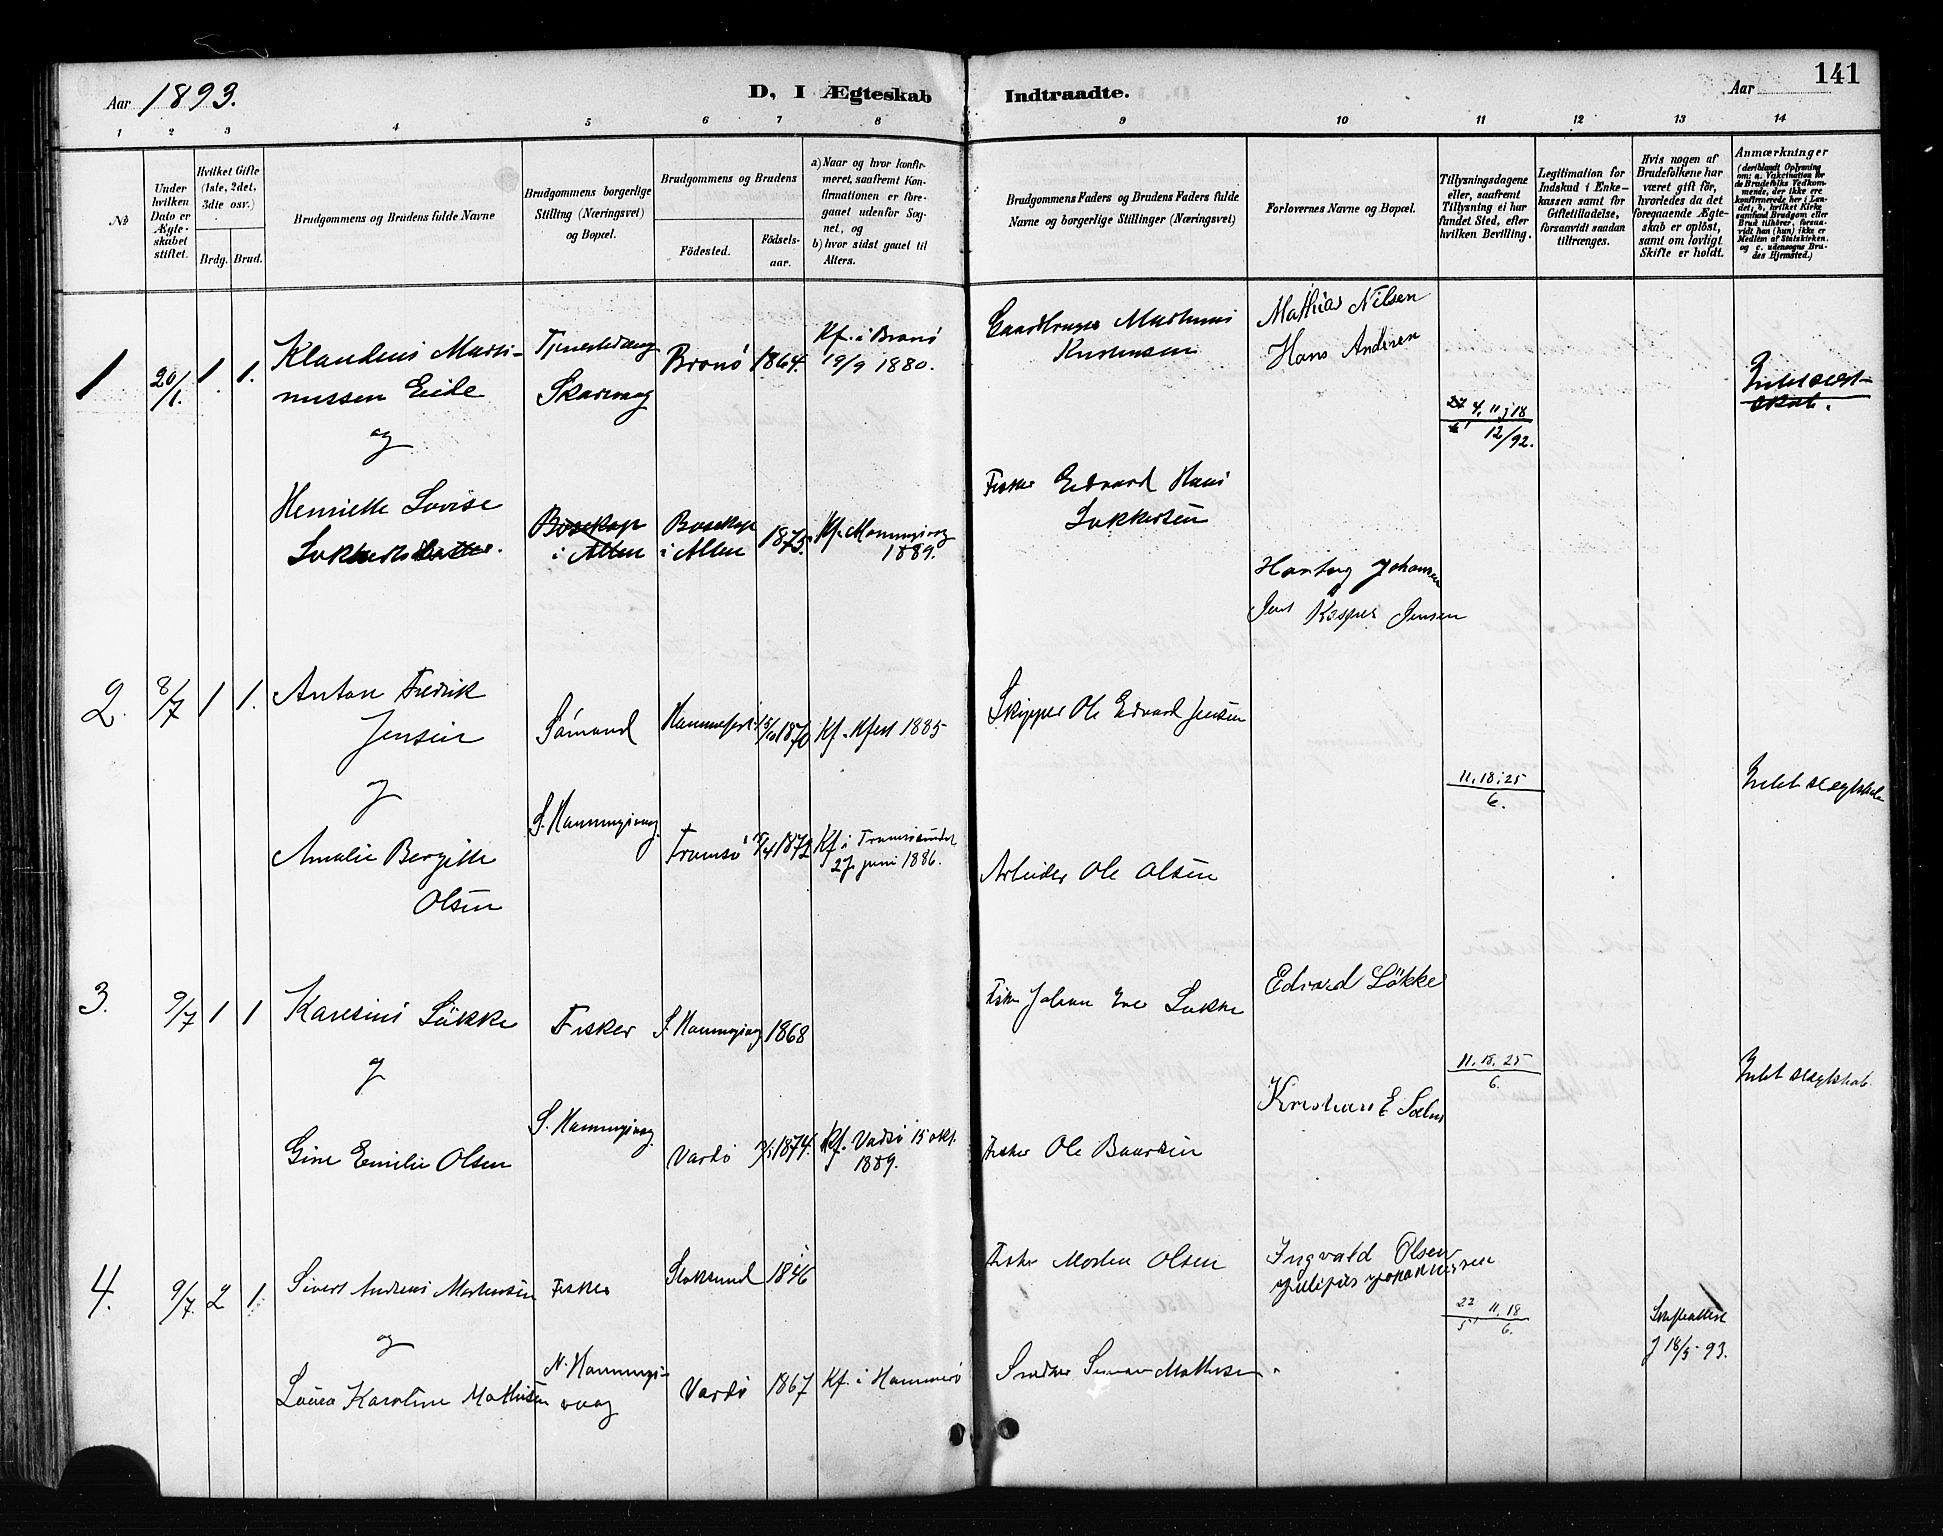 Aar 1893.
D, I Ægteskab Indtraadte.
Aar
141
1 2 3 4 5 6 7 8 9 10 11 12 13 14
No
Under hvilken Dato er Ægteskabet stiftet.
Hvilket Gifte (1ste, 2det, 3die osv.)
Brdg. Brud.
Brudgommens og Brudens fulde Navne
Brudgommens borgerlige Stilling (Næringsvei) og Bopæl.
Brudgommens og Brudens
Fødested.
Fødselsaar.
a) Naar og hvor konfirmeret, saafremt Konfirmationen er foregaaet udenfor Sognet, og
b) hvor sidst gaaet til Alters.
Brudgommens Faders og Brudens Faders fulde Navne og borgerlige Stillinger (Næringsvei)
Forlovernes Navne og Bopæl.
Tillysningsdagene eller, saafremt Tillysning ei har fundet Sted, efter hvilken Bevilling.
Legitimation for Indskud i Enkekassen samt for Giftetilladelse, forsaavidt saadan tiltrænges.
Hvis nogen af Brudefolkene har været gift før, hvorledes da det foregaaende Ægteskab er opløst, samt om lovligt Skifte er holdt.
Anmærkninger
(deriblandt Oplysning om: a. Vakcination for de Brudefolks Vedkommende, der ikke ere konfirmerede her i Landet; b, hvilket Kirkesamfund Brudgom eller Brud tilhører, forsaavidt han (hun) ikke er Medlem af Statskirken, og c. udensogns Brudes Hjemsted.)
1 20/1. 1. 1.
Klaudius Martinussen Eide
Tjenestedreng
Skarsvag
Brønø 1864.
Kf. i Brønø
19/9 1880.
Gaardbruger Martinus
Kristensen
Mathias Nilsen
Hans Andersen
4, 11, 18
12/92.
Intet slegtskab.
og
Henriette Lovise
Bosekop
i Alten
Bosekop
i Alten
1875.
Kf. Honningsvog
1889.
Fisker Edvard Hans
Lokkersen
Hartvig Johansen
Jens Kasper Jensen
2. 8/7 1 1.
Anton Fredrik
Jensen
Sømand
Hammerfest
15/10 1870
Kf. Hfest 1885
Skipper Ole Edvard Jensen
og
11. 18. 25
6.
Intet slegtskab
S. Honningsvog
Amalie Bergitte
Olsen
Tromsø
1872
Kf. i Tromsøsundet
27 juni 1886.
Arbeider Ole Olsen
3. 9/7 1 1
Karesius Løkke
Fisker
S. Honningsvog
1868
Johan Løkke
Edvard Løkke
og
11. 18. 25
6.
Intet slegtskab.
Kristian E
S. Honningsvog
Gine Emilie Olsen
Vardø
1874.
Kf. Vadsø 15 okt.
1889.
Fisker Ole Baardsen
4. 9/7. 2 1.
Sivert Andreas Mortensen
Fisker
Stoksund
1846
Fisker Morten Olsen
Ingvald Olsen
og
22 11. 18
5 6.
Skifteattest
f 18/5 93.
N. Honningsvaag
Laura Karoline Mathisen
Vardø
1867
Kf. i Hammerø
Simon Mathisen